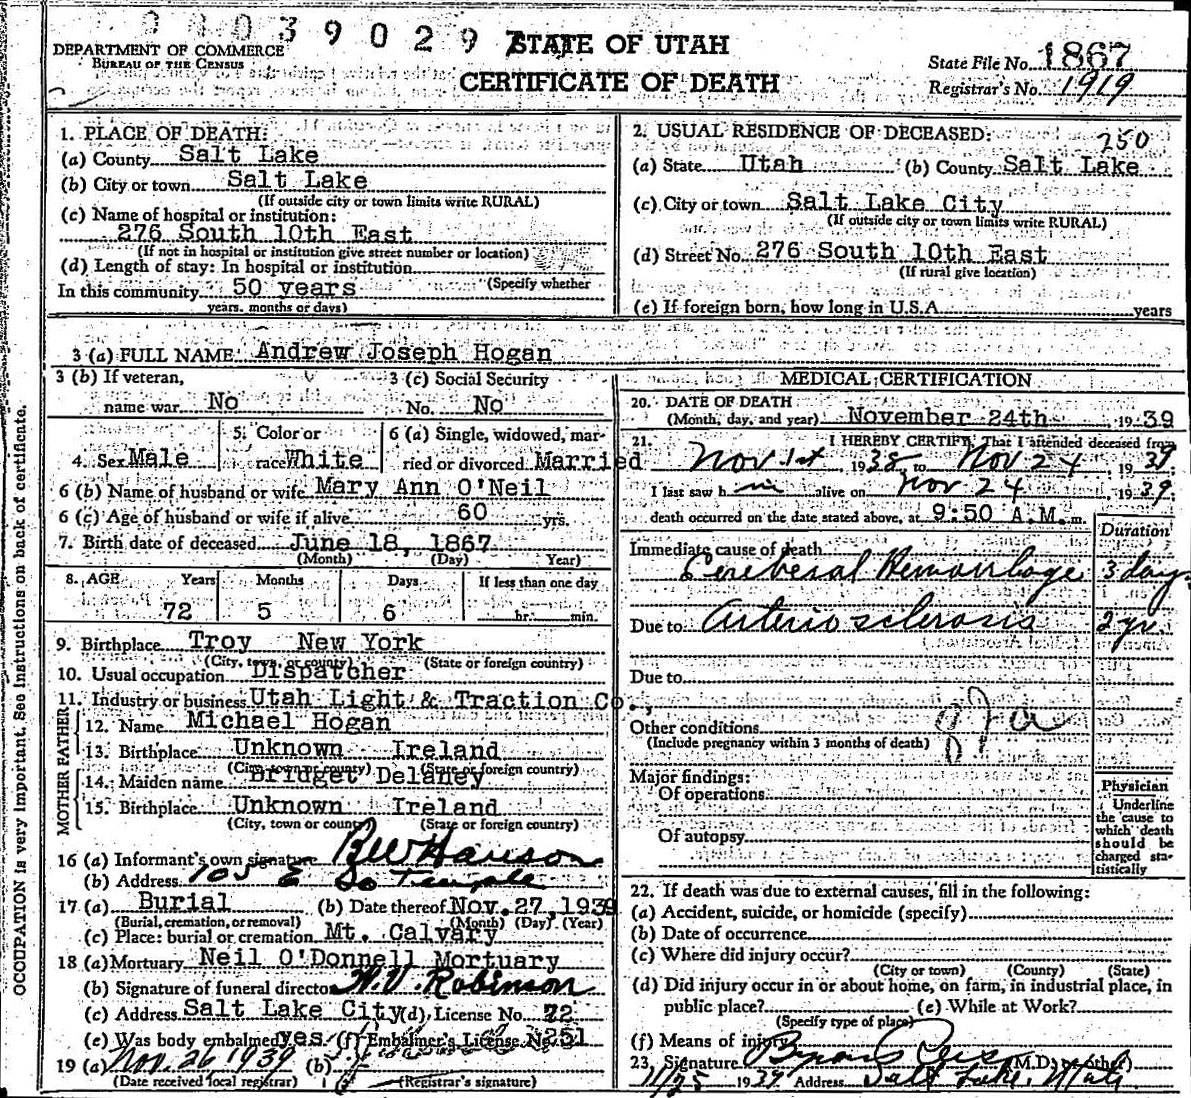 39029
DEPARTMENT OF COMMERCE
BUREAU OF THE CENSUS
STATE OF UTAH
CERTIFICATE OF DEATH
State File No. 1867
Registrar's No. 1919
1. PLACE OF DEATH:
(a) County Salt Lake
(b) City or town Salt Lake
(If outside city or town limits write RURAL)
(c) Name of hospital or institution:
276 South 10th East
(If not in hospital or institution give street number or location)
(d) Length of stay: In hospital or institution
(Specify whether
In this community 50 years
years, months or days)
2. USUAL RESIDENCE OF DECEASED:
250
(a) State Utah (b) County Salt Lake
(c) City or town Salt Lake City
(If outside city or town limits write RURAL)
(d) Street No. 276 South 10th East
(If rural give location)
(e) If foreign born, how long in U.S.A. years
3 (a) FULL NAME Andrew Joseph Hogan
3 (b) If veteran,
name war No
3 (c) Social Security
No. No
4. Sex Male
5. Color or
race White
6 (a) Single, widowed, mar-
ried or divorced Married
6 (b) Name of husband or wife Mary Ann O'Neil
6 (c) Age of husband or wife if alive 60 yrs.
7. Birth date of deceased June 18, 1867
(Month) (Day) Year)
8. AGE Years Months Days If less than one day
72 5 6 hr. min.
9. Birthplace Troy New York
(City, town, or county) (State or foreign country)
10. Usual occupation Dispatcher
11. Industry or business Utah Light & Traction Co.,
FATHER
12. Name Michael Hogan
13. Birthplace Unknown Ireland
(City, town or county) (State or foreign country)
MOTHER
14. Maiden name Bridget Delaney
15. Birthplace Unknown Ireland
(City, town or county) (State or foreign country)
16 (a) Informant's own signature
(b) Address 105 E So Temple
17 (a) Burial (b) Date thereof Nov. 27, 1939
(Burial, cremation, or removal) (Month) (Day) (Year)
(c) Place: burial or cremation Mt. Calvary
18 (a) Mortuary Neil O'Donnell Mortuary
(b) Signature of funeral director H.V. Robinson
(c) Address Salt Lake City (d) License No. 72
(e) Was body embalmed yes (f) Embalmer's License No. 251
19 (a) Nov. 26 1939 (b)
(Date received local registrar) (Registrar's signature)
MEDICAL CERTIFICATION
20. DATE OF DEATH
(Month, day, and year) November 24th 1939
21. I HEREBY CERTIFY, That I attended deceased from
Nov 1st 1938, to Nov 24, 1939;
I last saw him alive on Nov 24 1939;
death occurred on the date stated above, at 9:50 A.M. m.
Duration
Immediate cause of death
Cerebral Hemorrhage 3 days
Due to Arteriosclerosis 2 yr.
Due to
Other conditions
(Include pregnancy within 3 months of death)
Major findings:
Of operations
Of autopsy
Physician
Underline
the cause to
which death
should be
charged sta-
tistically
22. If death was due to external causes, fill in the following:
(a) Accident, suicide, or homicide (specify)
(b) Date of occurrence
(c) Where did injury occur?
(City or town) (County) (State)
(d) Did injury occur in or about home, on farm, in industrial place, in
public place? (e) While at Work?
(Specify type of place)
(f) Means of injury
23. Signature (M.D. or other)
11/25 1939 Address Salt Lake, Utah
OCCUPATION is very important. See instructions on back of certificate.